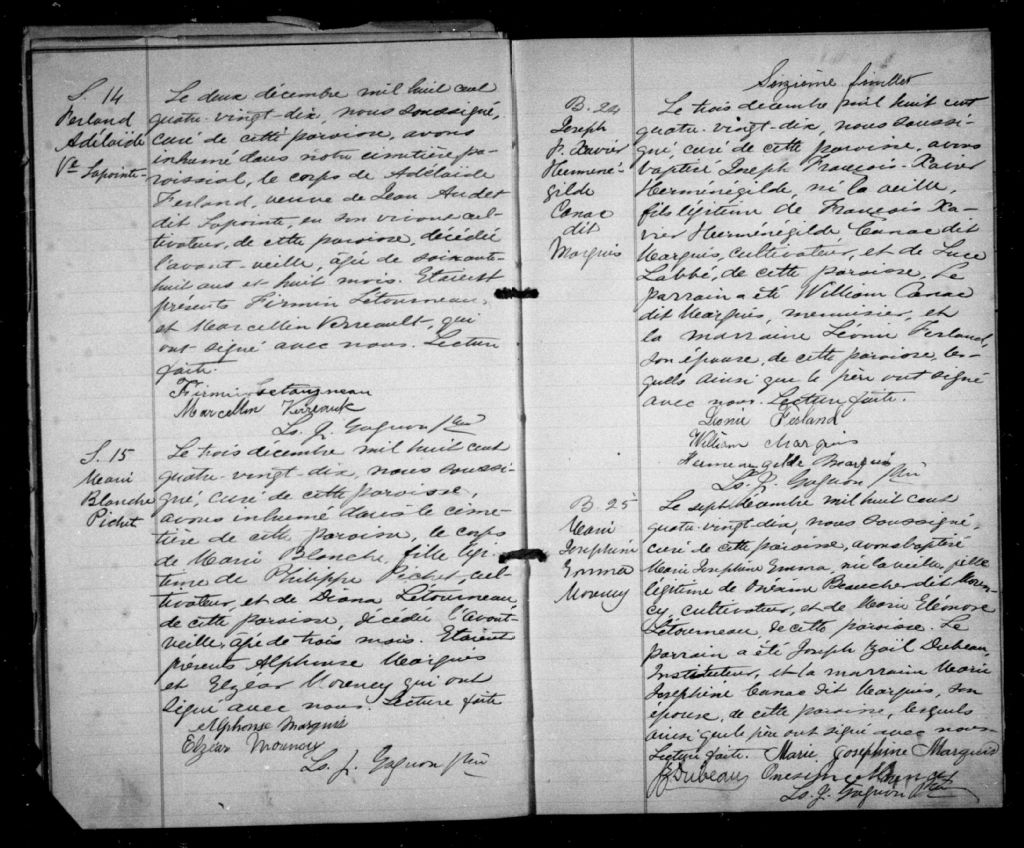 S. 14
Ferland
Adélaïde
Vve Lapointe
Le deux décembre mil huit cent
quatre-vingt-dix, nous soussigné,
curé de cette paroisse, avons
inhumé dans notre cimetière pa-
roissial, le corps de Adélaïde
Ferland, veuve de Jean Audet
dit Lapointe, en son vivant cul-
tivateur, de cette paroisse, décédée
l'avant-veille, âgée de soixante-
huit ans et huit mois. Etaient
présents Firmin Létourneau,
et Marcellin Verreault, qui
ont signé avec nous. Lecture
faite.
Firmin Letourneau
Marcellin Verreault
Ls. J. Gagnon Ptre
S. 15
Marie
Blanche
Pichet
Le trois décembre mil huit cent
quatre-vingt-dix, nous soussi-
gné, curé de cette paroisse,
avons inhumé dans le cime-
tière de cette paroisse, le corps
de Marie Blanche, fille légi-
time de Philippe Pichet, cul-
tivateur, et de Diana Létourneau,
de cette paroisse, décédée l'avant-
veille, âgée de trois mois. Etaient
présents Alphonse Marquis
et Elzéar Morency qui ont
signé avec nous. Lecture faite
Alphonse Marquis
Elzéar Morency
Ls. J. Gagnon Ptre
Seizième feuillet
B. 24
Joseph
F. Xavier
Herméné-
gilde
Canac
dit
Marquis
Le trois décembre mil huit cent
quatre-vingt-dix, nous soussi-
gné, curé de cette paroisse, avons
baptisé Joseph François-Xavier
Herménégilde, né la veille,
fils légitime de François Xa-
vier Herménégilde Canac dit
Marquis, cultivateur, et de Luce
Labbé, de cette paroisse. Le
parrain a été William Canac
dit Marquis, menuisier, et
la marraine Léonie Ferland,
son épouse, de cette paroisse, les-
quels ainsi que le père ont signé
avec nous. Lecture faite.
Léonie Ferland
William Marquis
Hermenegilde Marquis
Ls. J. Gagnon Ptre
B. 25
Marie
Josephine
Emma
Morency
Le sept décembre mil huit cent
quatre-vingt-dix, nous soussigné,
curé de cette paroisse, avons baptisé
Marie Josephine Emma, née la veille, fille
légitime de Onésime Beaucher dit Moren-
cy, cultivateur, et de Marie Eléonore
Létourneau, de cette paroisse. Le
parrain a été Joseph Dubeau,
Instituteur, et la marraine Marie
Josephine Canac dit Marquis, son
épouse, de cette paroisse, lesquels
ainsi que le père ont signé avec nous
Lecture faite. Marie Josephine Marquis
J Dubeau Onesime
Ls. J. Gagnon Ptre